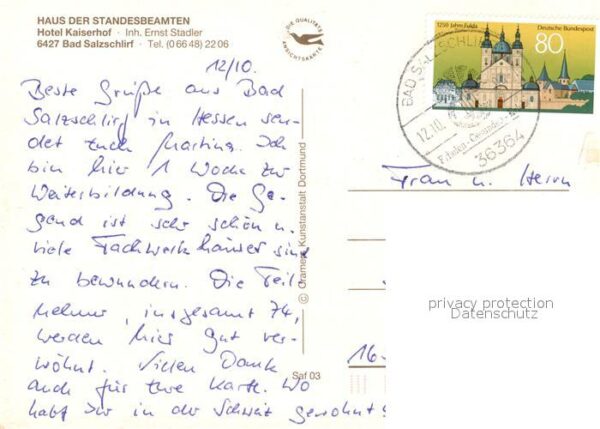 HAUS DER STANDESBEAMTEN
Hotel Kaiserhof · Inh. Ernst Stadler
6427 Bad Salzschlirf · Tel. (0 66 48) 22 06
12/10.
Beste Grüße aus Bad
Salzschlirf in Hessen sen-
det Euch Martina. Ich
bin hier 1 Woche zur
Weiterbildung. Die Ge-
gend ist sehr schön u.
viele Fachwerkhäuser sind
zu bewundern. Die Teil-
nehmer, insgesamt 74,
werden hier gut ver-
wöhnt. Vielen Dank
auch für Ihre Karte. Wo
habt Ihr in der Schweiz gewohnt?
DIE QUALITÄTS
ANSICHTSKARTE
© Cramers Kunstanstalt Dortmund
Saf 03
1250 Jahre Fulda
Deutsche Bundespost
80
BAD SALZSCHLIRF
12.10.
36364
Frau u. Herrn
privacy protection
Datenschutz
16-